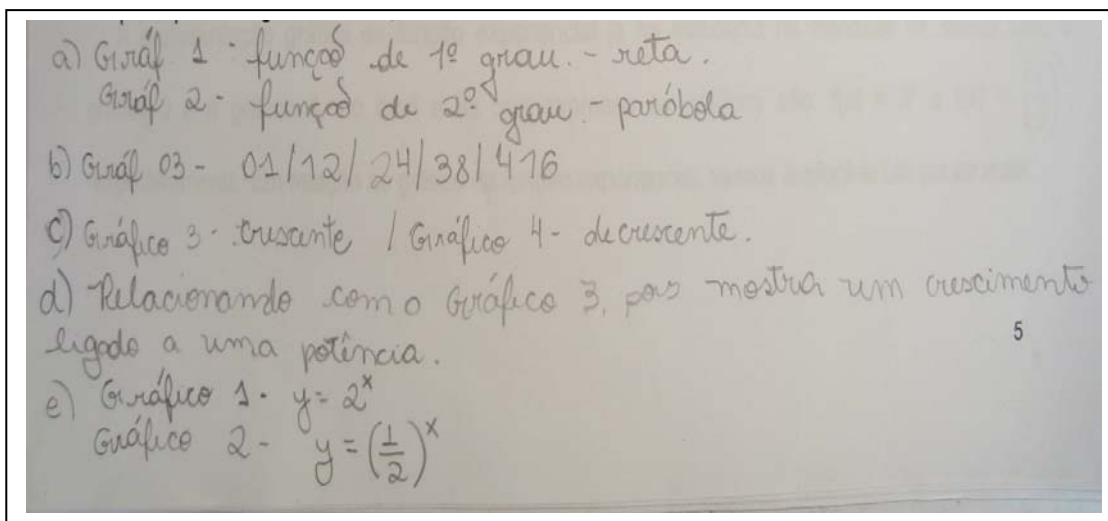 a) Gráf 1 - função de 1º grau. - reta.
Gráf 2 - função de 2º grau - parábola
b) Gráf 03 - 01/12/24/38/416
c) Gráfico 3 - crescente / Gráfico 4 - decrescente.
d) Relacionando com o Gráfico 3, pois mostra um crescimento
ligado a uma potência.
5
e) Gráfico 1 - y = 2ˣ
Gráfico 2 - y = (1/2)ˣ